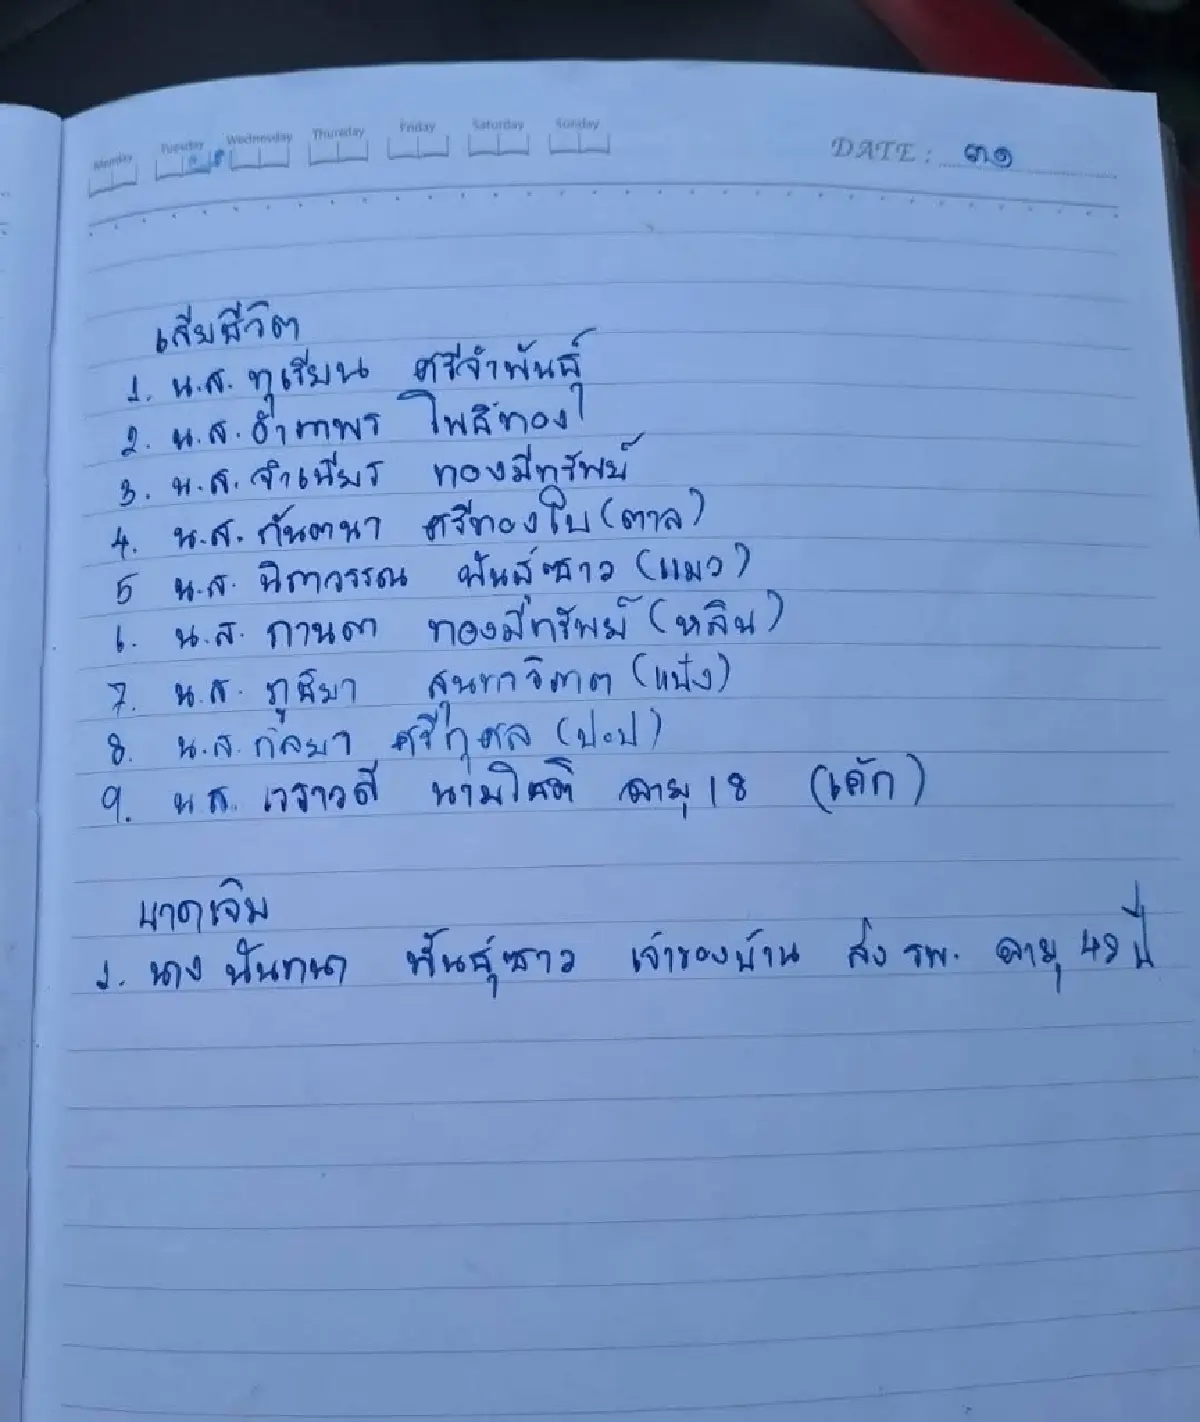 Monday Tuesday Wednesday Thursday Friday Saturday Sunday
DATE : ๓๑
เสียชีวิต
1. น.ส. ทุเรียน ศรีจำพันธุ์
2. น.ส. อำภาพร โพธิ์ทอง
3. น.ส. จำเนียร ทองมีทรัพย์
4. น.ส. กันตนา ศรีทองใบ (ตาล)
5 น.ส. นิภาวรรณ พันธุ์ซาว (แมว)
6. น.ส. กานดา ทองมีทรัพย์ (หลิน)
7. น.ส. ภูธิมา สุนทรจิตต (แป้ง)
8. น.ส. กัลยา ศรีกุศล (ปะป)
9. น.ส. วราวดี นามโชติ อายุ 18 (เค้ก)
บาดเจ็บ
1. นาง นันทนา พันธุ์ซาว เจ้าของบ้าน ส่ง รพ. อายุ 49 ปี